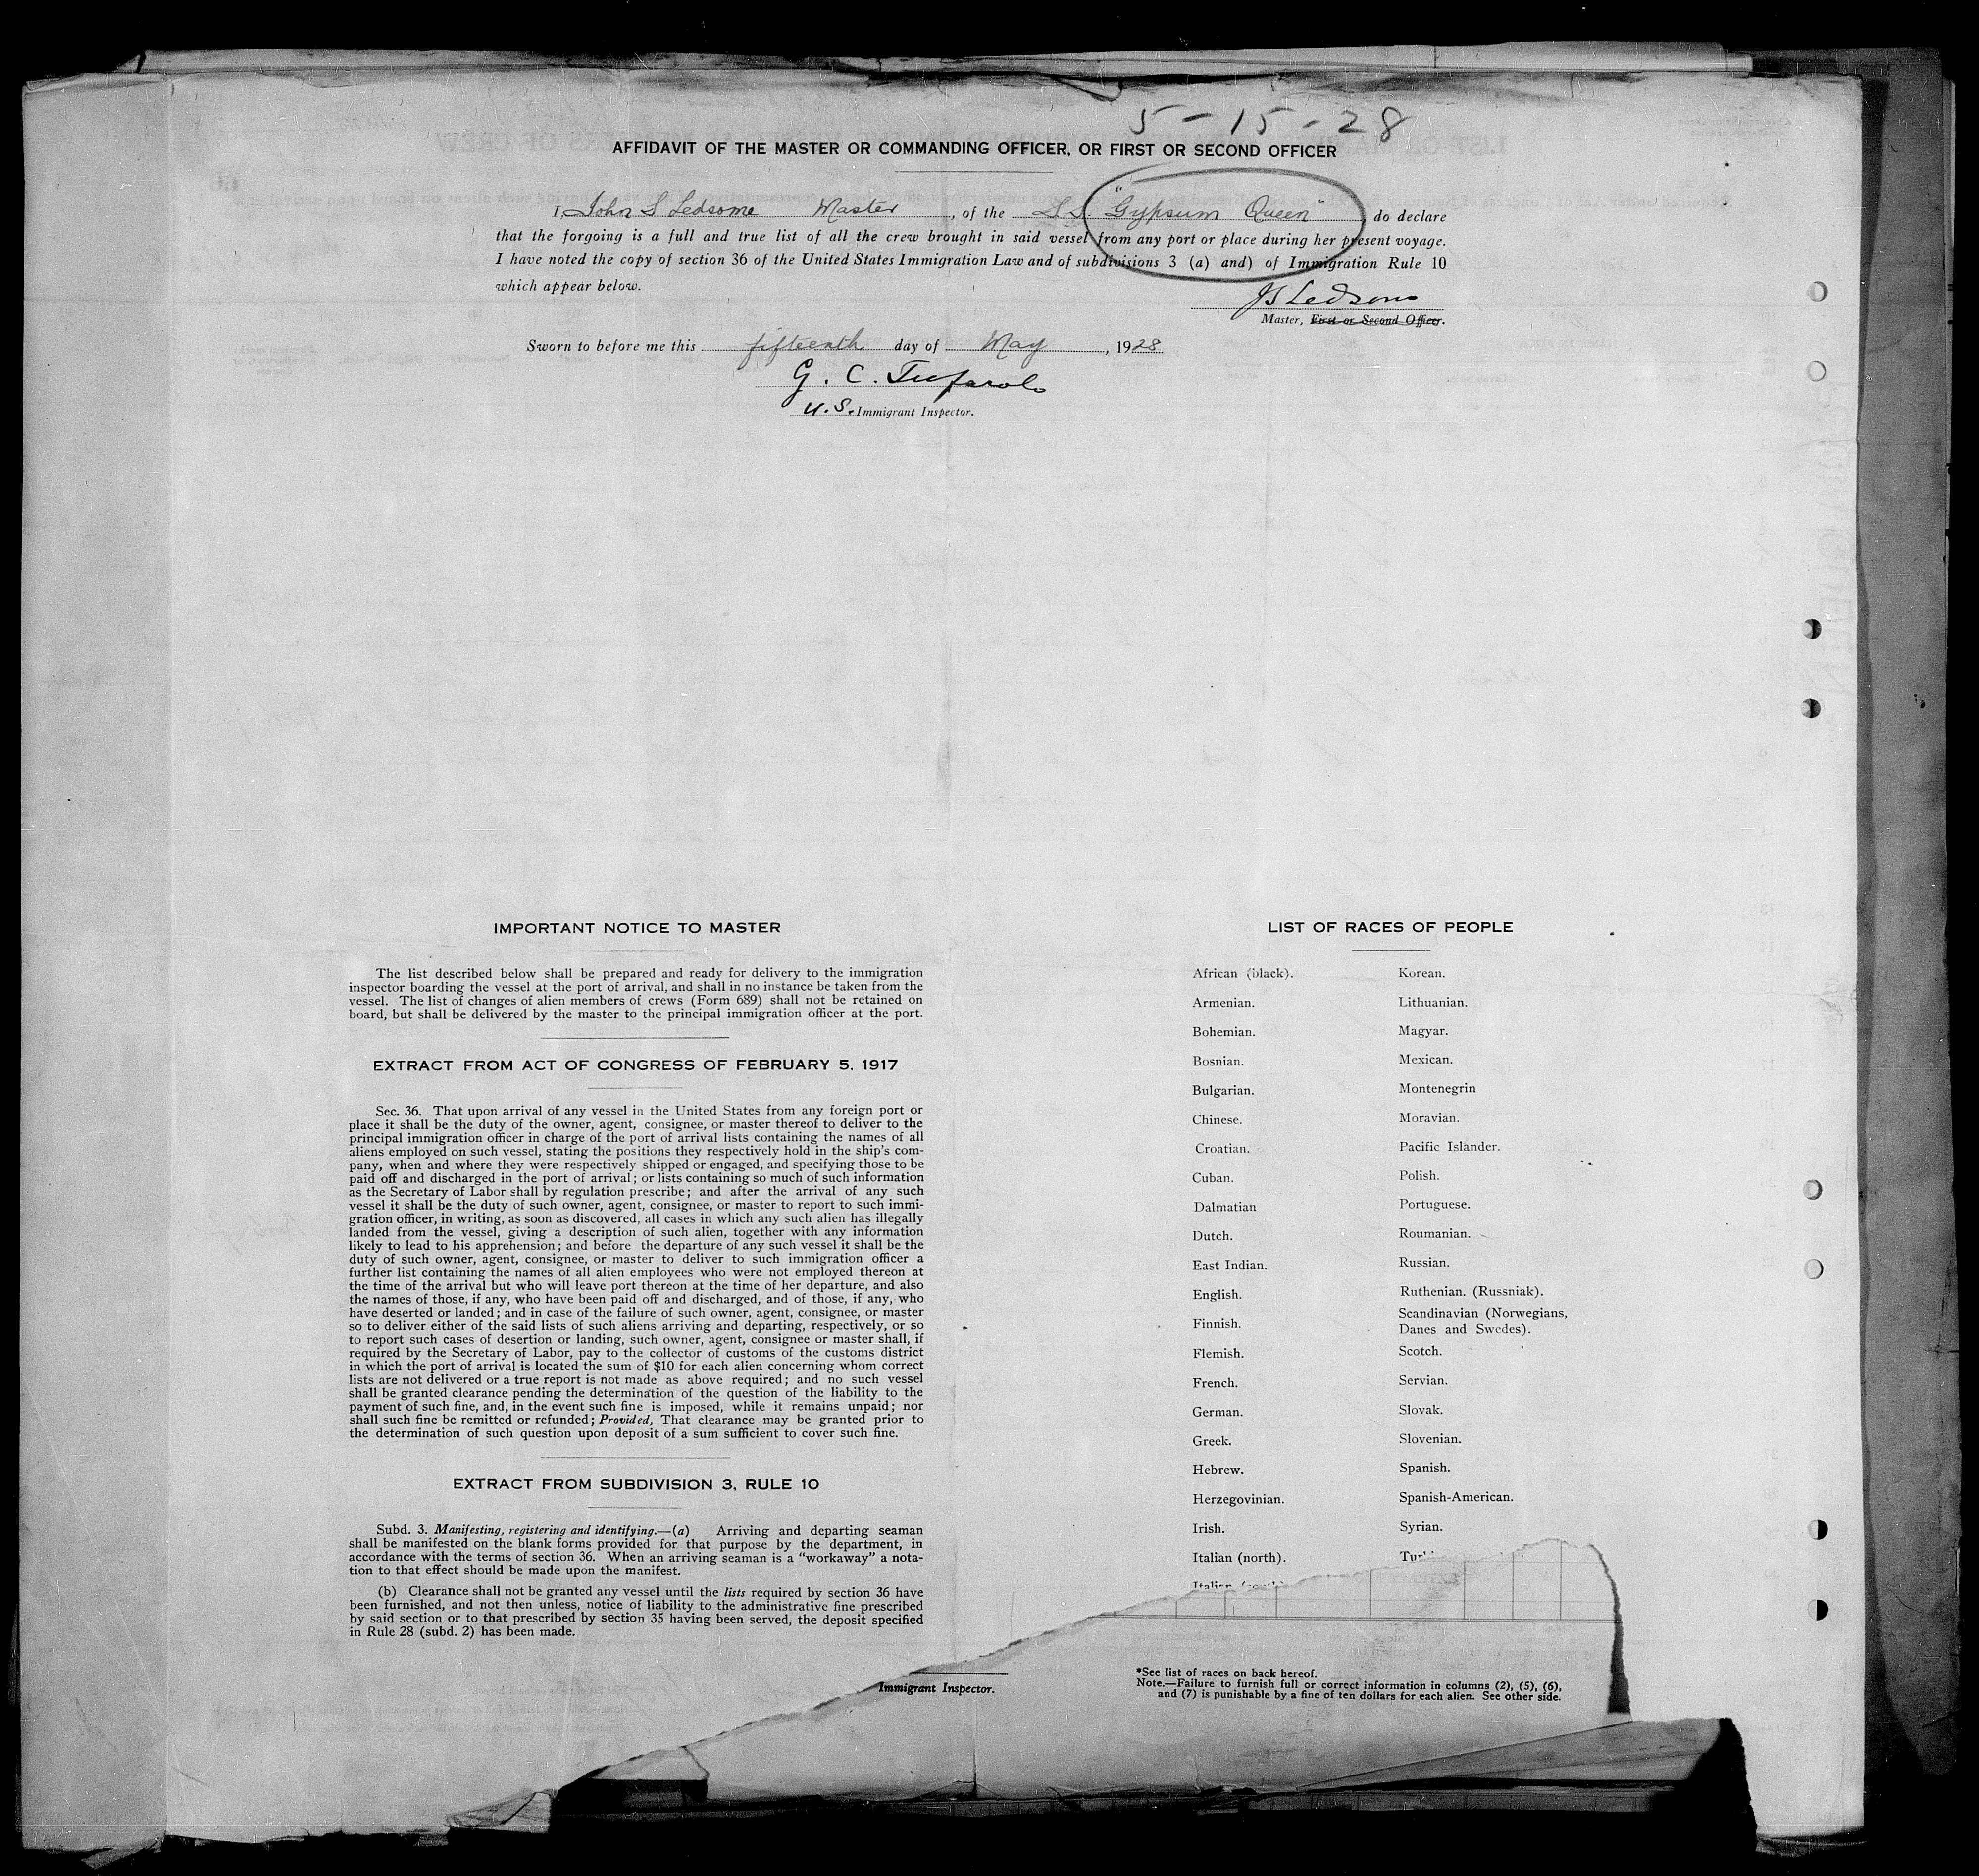 5-15-28
AFFIDAVIT OF THE MASTER OR COMMANDING OFFICER, OR FIRST OR SECOND OFFICER
I, John S Ledsome Master, of the S.S. "Gypsum Queen", do declare
that the forgoing is a full and true list of all the crew brought in said vessel from any port or place during her present voyage.
I have noted the copy of section 36 of the United States Immigration Law and of subdivisions 3 (a) and) of Immigration Rule 10
which appear below.
J S Ledsome
Master, First or Second Officer.
Sworn to before me this fifteenth day of May, 1928
G. C.
U.S. Immigrant Inspector.
IMPORTANT NOTICE TO MASTER
The list described below shall be prepared and ready for delivery to the immigration
inspector boarding the vessel at the port of arrival, and shall in no instance be taken from the
vessel. The list of changes of alien members of crews (Form 689) shall not be retained on
board, but shall be delivered by the master to the principal immigration officer at the port.
EXTRACT FROM ACT OF CONGRESS OF FEBRUARY 5, 1917
Sec. 36. That upon arrival of any vessel in the United States from any foreign port or
place it shall be the duty of the owner, agent, consignee, or master thereof to deliver to the
principal immigration officer in charge of the port of arrival lists containing the names of all
aliens employed on such vessel, stating the positions they respectively hold in the ship's com-
pany, when and where they were respectively shipped or engaged, and specifying those to be
paid off and discharged in the port of arrival; or lists containing so much of such information
as the Secretary of Labor shall by regulation prescribe; and after the arrival of any such
vessel it shall be the duty of such owner, agent, consignee, or master to report to such immi-
gration officer, in writing, as soon as discovered, all cases in which any such alien has illegally
landed from the vessel, giving a description of such alien, together with any information
likely to lead to his apprehension; and before the departure of any such vessel it shall be the
duty of such owner, agent, consignee, or master to deliver to such immigration officer a
further list containing the names of all alien employees who were not employed thereon at
the time of the arrival but who will leave port thereon at the time of her departure, and also
the names of those, if any, who have been paid off and discharged, and of those, if any, who
have deserted or landed; and in case of the failure of such owner, agent, consignee, or master
so to deliver either of the said lists of such aliens arriving and departing, respectively, or so
to report such cases of desertion or landing, such owner, agent, consignee or master shall, if
required by the Secretary of Labor, pay to the collector of customs of the customs district
in which the port of arrival is located the sum of $10 for each alien concerning whom correct
lists are not delivered or a true report is not made as above required; and no such vessel
shall be granted clearance pending the determination of the question of the liability to the
payment of such fine, and, in the event such fine is imposed, while it remains unpaid; nor
shall such fine be remitted or refunded; Provided, That clearance may be granted prior to
the determination of such question upon deposit of a sum sufficient to cover such fine.
EXTRACT FROM SUBDIVISION 3, RULE 10
Subd. 3. Manifesting, registering and identifying.—(a) Arriving and departing seaman
shall be manifested on the blank forms provided for that purpose by the department, in
accordance with the terms of section 36. When an arriving seaman is a "workaway" a nota-
tion to that effect should be made upon the manifest.
(b) Clearance shall not be granted any vessel until the lists required by section 36 have
been furnished, and not then unless, notice of liability to the administrative fine prescribed
by said section or to that prescribed by section 35 having been served, the deposit specified
in Rule 28 (subd. 2) has been made.
LIST OF RACES OF PEOPLE
African (black).
Armenian.
Bohemian.
Bosnian.
Bulgarian.
Chinese.
Croatian.
Cuban.
Dalmatian
Dutch.
East Indian.
English.
Finnish.
Flemish.
French.
German.
Greek.
Hebrew.
Herzegovinian.
Irish.
Italian (north).
Italian (south)
Korean.
Lithuanian.
Magyar.
Mexican.
Montenegrin
Moravian.
Pacific Islander.
Polish.
Portuguese.
Roumanian.
Russian.
Ruthenian. (Russniak).
Scandinavian (Norwegians,
Danes and Swedes).
Scotch.
Servian.
Slovak.
Slovenian.
Spanish.
Spanish-American.
Syrian.
Immigrant Inspector.
*See list of races on back hereof.
Note.—Failure to furnish full or correct information in columns (2), (5), (6),
and (7) is punishable by a fine of ten dollars for each alien. See other side.